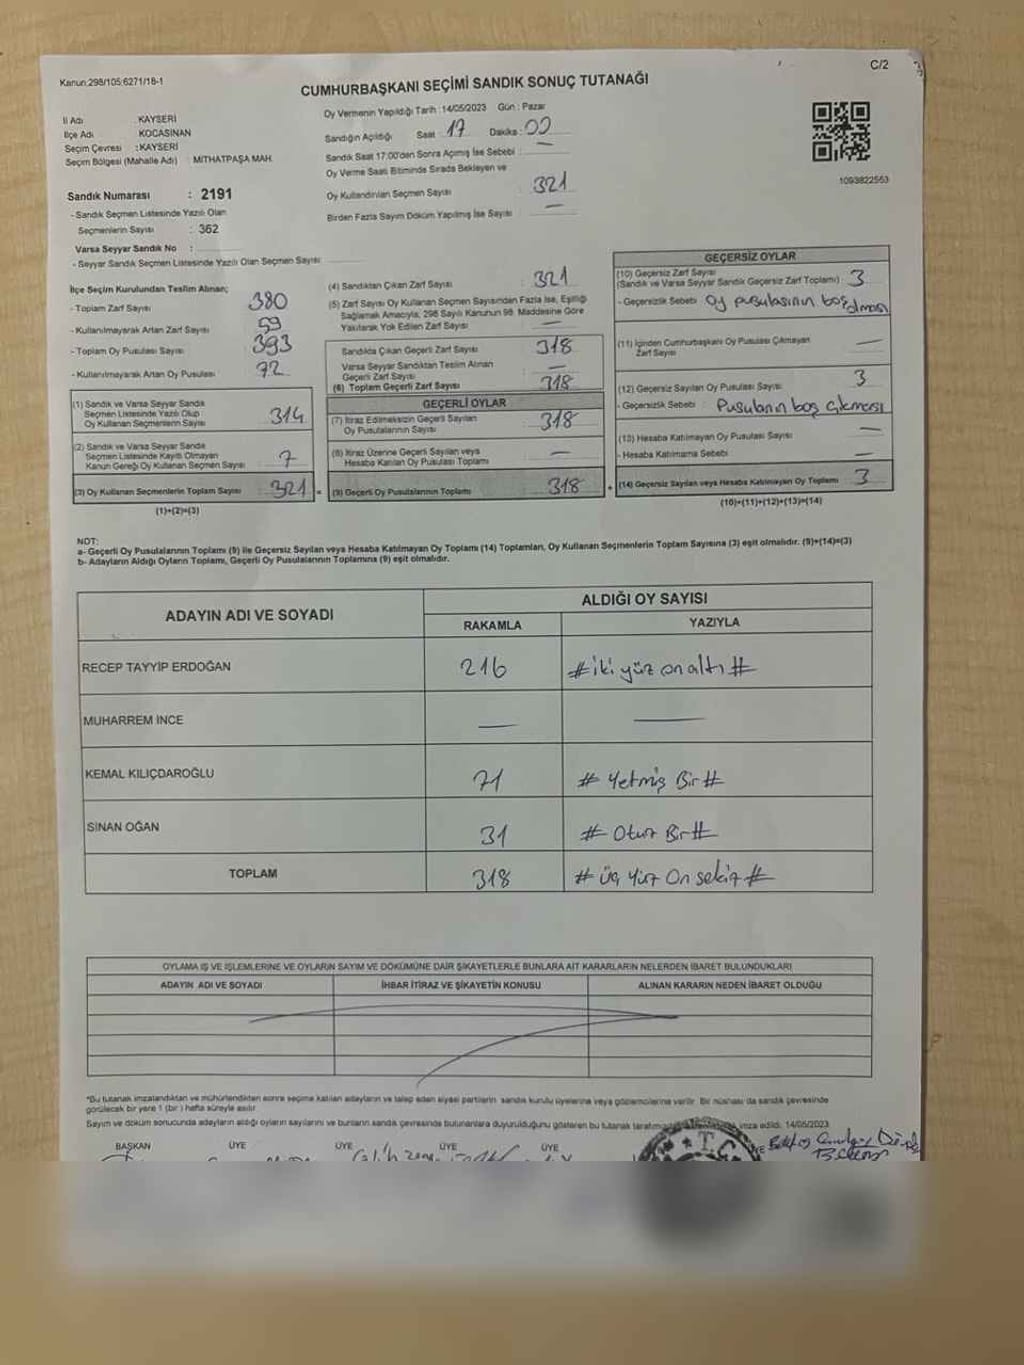 Kanun:298/105;6271/18-1
C/2
CUMHURBAŞKANI SEÇİMİ SANDIK SONUÇ TUTANAĞI
İl Adı : KAYSERİ
İlçe Adı : KOCASİNAN
Seçim Çevresi : KAYSERİ
Seçim Bölgesi (Mahalle Adı) : MİTHATPAŞA MAH.
Sandık Numarası : 2191
- Sandık Seçmen Listesinde Yazılı Olan
Seçmenlerin Sayısı : 362
Varsa Seyyar Sandık No :
- Seyyar Sandık Seçmen Listesinde Yazılı Olan Seçmen Sayısı:
Oy Vermenin Yapıldığı Tarih : 14/05/2023 Gün : Pazar
Sandığın Açıldığı Saat : 17 Dakika : 00
Sandık Saat 17:00'den Sonra Açımış İse Sebebi : —
Oy Verme Saati Bitiminde Sırada Bekleyen ve
Oy Kullandırılan Seçmen Sayısı : 321
Birden Fazla Sayım Döküm Yapılmış İse Sayısı : —
1093822553
İlçe Seçim Kurulundan Teslim Alınan;
- Toplam Zarf Sayısı : 380
- Kullanılmayarak Artan Zarf Sayısı : 59
- Toplam Oy Pusulası Sayısı : 393
- Kullanılmayarak Artan Oy Pusulası : 72
(1) Sandık ve Varsa Seyyar Sandık
Seçmen Listesinde Yazılı Olup
Oy Kullanan Seçmenlerin Sayısı : 314
(2) Sandık ve Varsa Seyyar Sandık
Seçmen Listesinde Kayıtlı Olmayan
Kanun Gereği Oy Kullanan Seçmen Sayısı : 7
(3) Oy Kullanan Seçmenlerin Toplam Sayısı : 321
(1)+(2)=(3)
(4) Sandıktan Çıkan Zarf Sayısı : 321
(5) Zarf Sayısı Oy Kullanan Seçmen Sayısından Fazla İse, Eşitliği
Sağlamak Amacıyla, 298 Sayılı Kanunun 98. Maddesine Göre
Yakılarak Yok Edilen Zarf Sayısı : —
Sandıkta Çıkan Geçerli Zarf Sayısı : 318
Varsa Seyyar Sandıktan Teslim Alınan
Geçerli Zarf Sayısı : —
(6) Toplam Geçerli Zarf Sayısı : 318
GEÇERLİ OYLAR
(7) İtiraz Edilmeksizin Geçerli Sayılan
Oy Pusulalarının Sayısı : 318
(8) İtiraz Üzerine Geçerli Sayılan veya
Hesaba Katılan Oy Pusulası Toplamı : —
= (9) Geçerli Oy Pusulalarının Toplamı : 318
GEÇERSİZ OYLAR
(10) Geçersiz Zarf Sayısı
(Sandık ve Varsa Seyyar Sandık Geçersiz Zarf Toplamı) : 3
- Geçersizlik Sebebi : Oy pusulasının boş olması
(11) İçinden Cumhurbaşkanı Oy Pusulası Çıkmayan
Zarf Sayısı : —
(12) Geçersiz Sayılan Oy Pusulası Sayısı : 3
- Geçersizlik Sebebi : Pusulanın boş çıkması
(13) Hesaba Katılmayan Oy Pusulası Sayısı : —
- Hesaba Katılmama Sebebi : —
+ (14) Geçersiz Sayılan veya Hesaba Katılmayan Oy Toplamı : 3
(10)+(11)+(12)+(13)=(14)
NOT:
a- Geçerli Oy Pusulalarının Toplamı (9) ile Geçersiz Sayılan veya Hesaba Katılmayan Oy Toplamı (14) Toplamları, Oy Kullanan Seçmenlerin Toplam Sayısına (3) eşit olmalıdır. (9)+(14)=(3)
b- Adayların Aldığı Oyların Toplamı, Geçerli Oy Pusulalarının Toplamına (9) eşit olmalıdır.
ADAYIN ADI VE SOYADI
ALDIĞI OY SAYISI
RAKAMLA YAZIYLA
RECEP TAYYİP ERDOĞAN 216 #iki yüz on altı#
MUHARREM İNCE — —
KEMAL KILIÇDAROĞLU 71 #Yetmiş Bir#
SİNAN OĞAN 31 #Otuz Bir#
TOPLAM 318 #üç yüz On sekiz#
OYLAMA İŞ VE İŞLEMLERİNE VE OYLARIN SAYIM VE DÖKÜMÜNE DAİR ŞİKAYETLERLE BUNLARA AİT KARARLARIN NELERDEN İBARET BULUNDUKLARI
ADAYIN ADI VE SOYADI İHBAR İTİRAZ VE ŞİKAYETİN KONUSU ALINAN KARARIN NEDEN İBARET OLDUĞU
*Bu tutanak imzalandıktan ve mühürlendikten sonra seçime katılan adayların ve talep eden siyasi partilerin sandık kurulu üyelerine veya gözlemcilerine verilir. Bir nüshası da sandık çevresinde
görülecek bir yere 1 (bir) hafta süreyle asılır.
Sayım ve döküm sonucunda adayların aldığı oyların sayılarını ve bunların sandık çevresinde bulunanlara duyurulduğunu gösteren bu tutanak imza edildi. 14/05/2023
BAŞKAN ÜYE ÜYE ÜYE ÜYE
T.C.